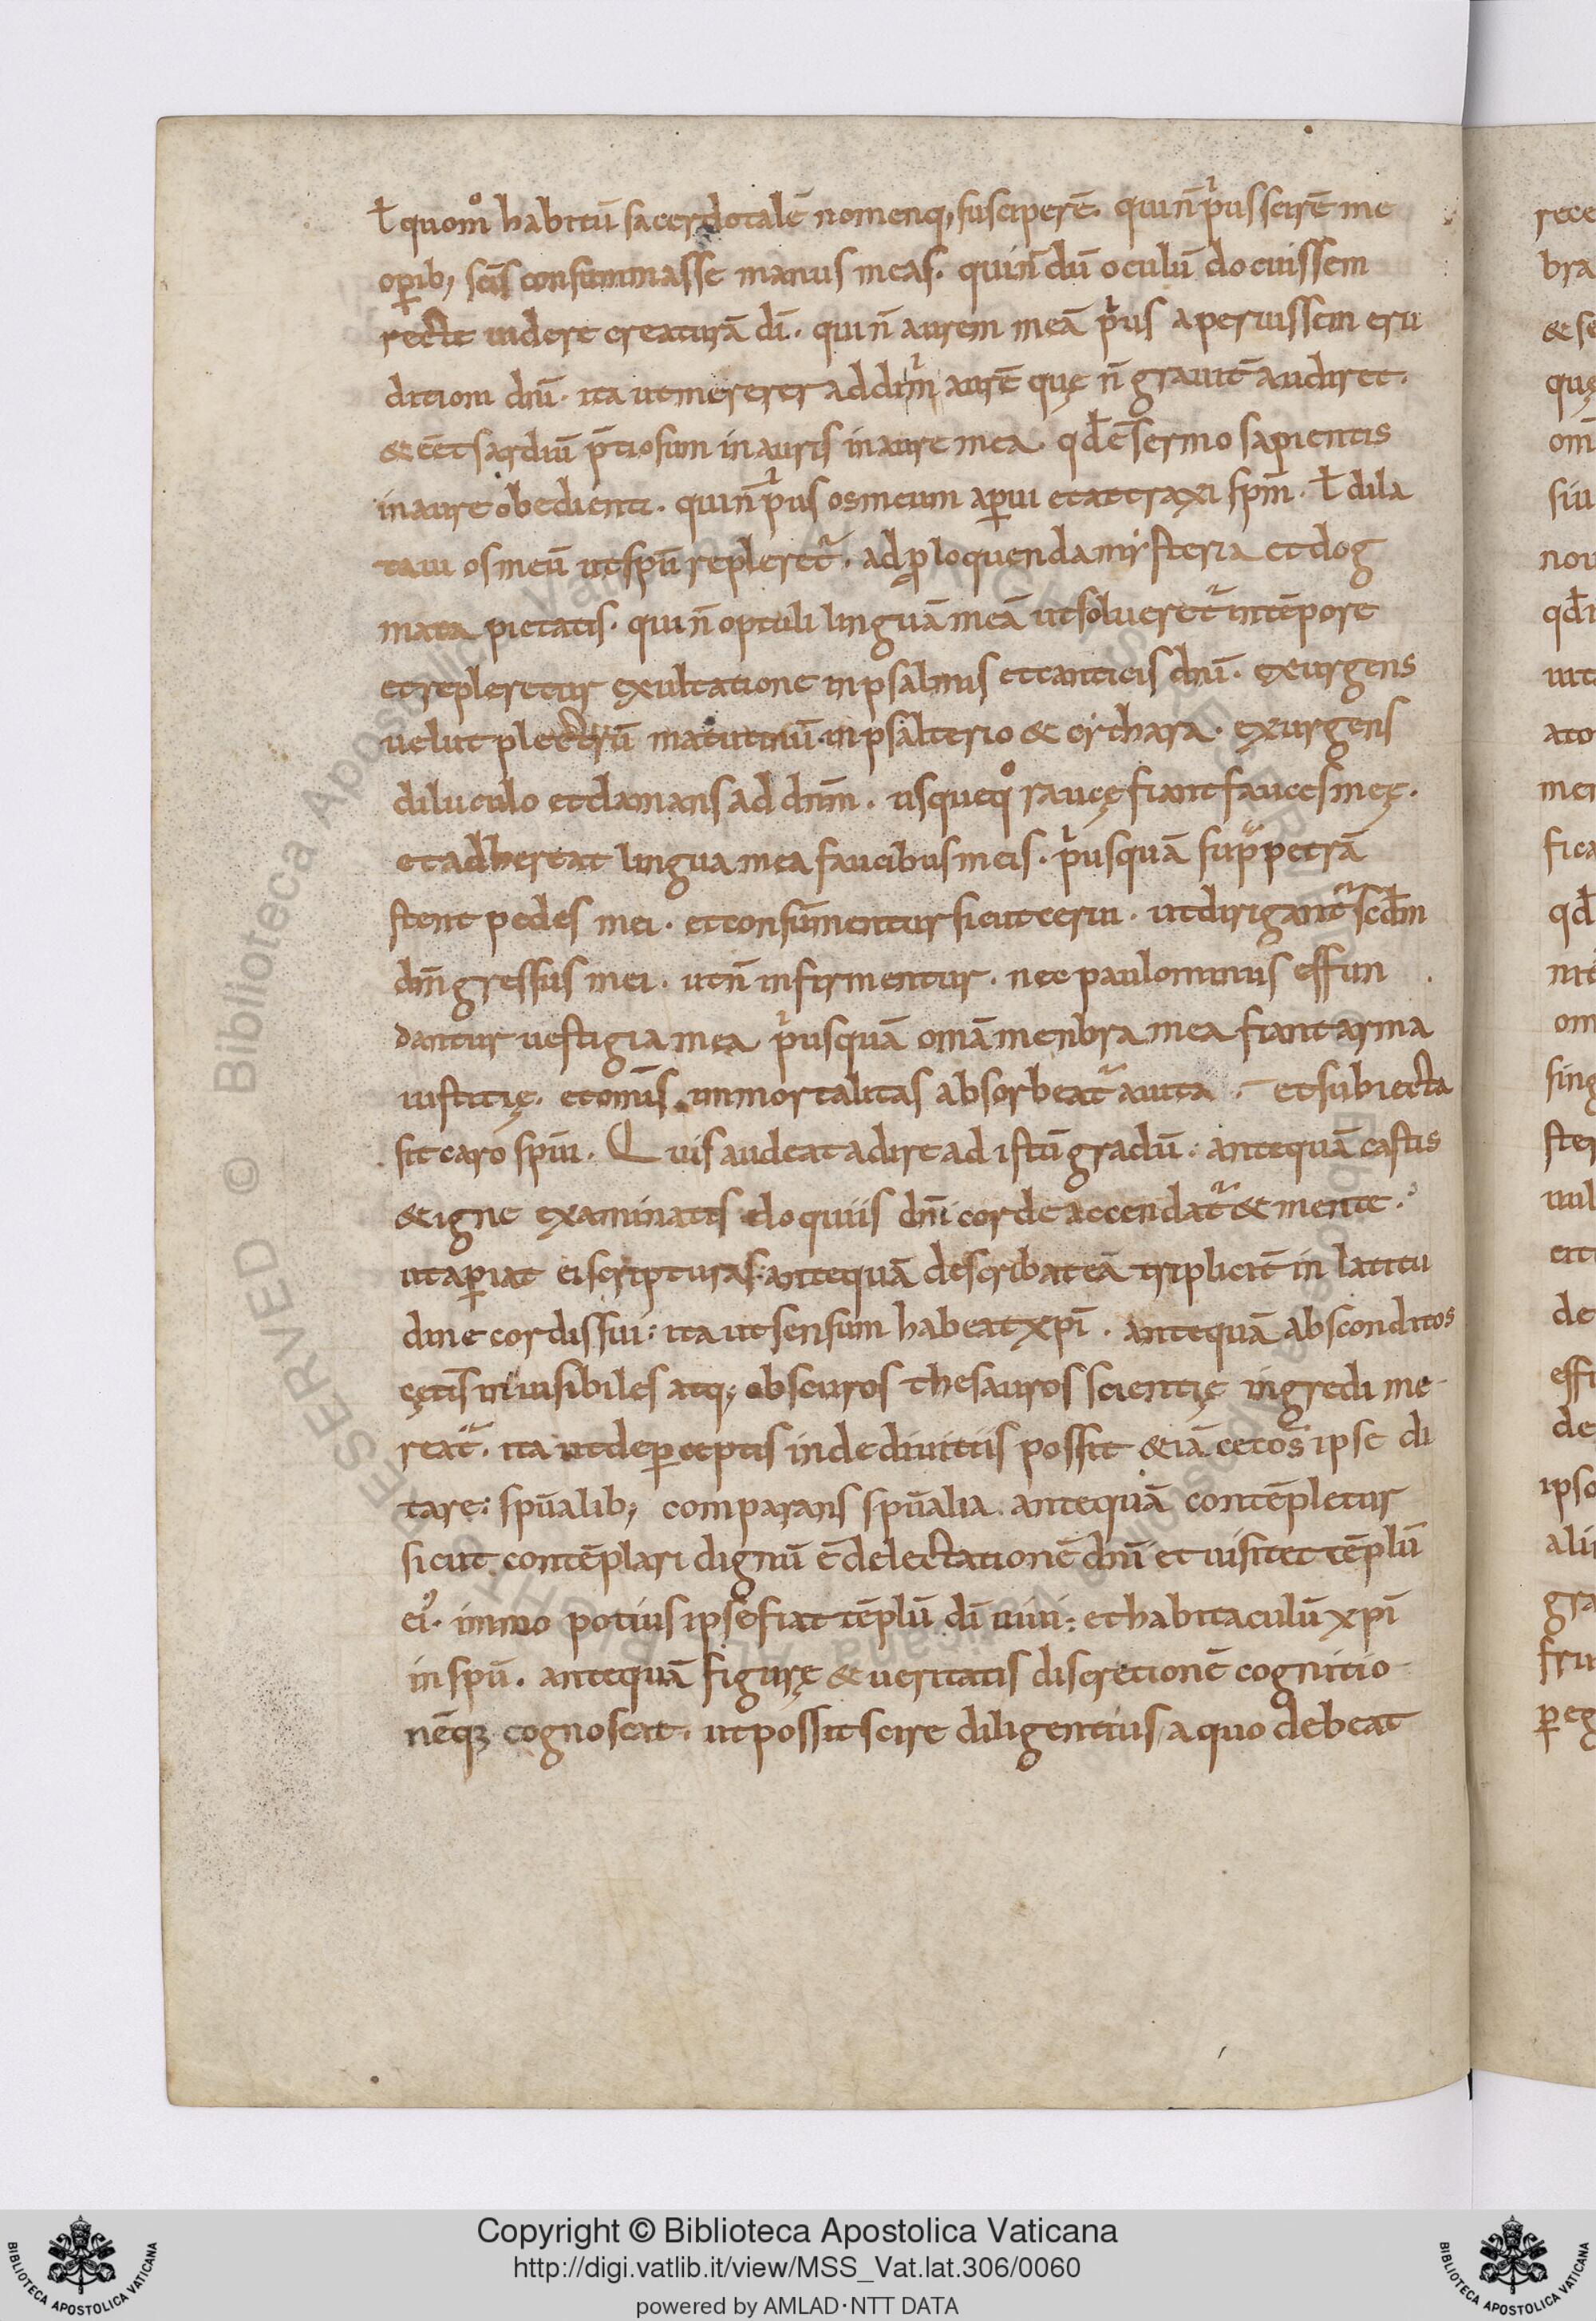 ł quom̊ habitū sacerdotalē nomenq; susciperē. qui n̄ pⁱus scirē me
op̱ib; sc̄is consummasse manus meas. qui n̄dū oculū docuissem
recte uidere creaturā dī. qui n̄ aurem meā pⁱus aperuissem eru
ditioni dn̄i. ita ut mererer addi mⁱ aurē quę n̄ grauit̄ audiret.
& eēt sardiū p̄tiosum in auris in aure mea. qd̄ ē sermo sapientis
in aure obedienti. qui n̄ pⁱus os meum ap̱ui et attraxi spm̄. ł dila
taui os meū ut spū repleret᷑. ad ꝓloquenda misteria et dog
mata pietatis. qui n̄ optuli linguā meā ut solueret᷑ in tēpore
et repleretur exultatione in psalmis et canticis dnī. exurgens
uelut plectrū matutinū in psalterio & cithara. exurgens
diluculo et clamans ad dnm̄. usquequo̊ raucę fiant fauces meę.
et adhereat lingua mea faucibus meis. pⁱusquā sup̱ petrā
stent pedes mei. et confūmentur sicut cerui. ut dirigant᷑ scd̄m
dm̄ gressus mei. ut n̄ infirmentur. nec paulominus effun
dantur uestigia mea pⁱusquā om̄a menbra mea fiant arma
iustitię. et om̄is immortalitas absorbeat᷑ a uita. et subiecta
sit caro spūi. Quis audeat adire ad istū gradū. antequā castis
& igne examinatis eloquiis dnī corde accendat᷑ & mente.
ut ap̱iat ei scripturas. antequā describat eā triplicit̄ in latitu
dine cordis sui: ita ut sensum habeat xpī. antequā absconditos
cętīs inuisibiles atq; obscuros thesauros scientię ingredi me
reat᷑. ita ut de p̱ceptis inde diuitiis possit & iā ceto̅s̅ ipse di
tare: spūalib; comparans spūalia. antequā contēpletur
sicut contēplari dignū ē delectationē dnī et uisitet tēplū
ei᷒. immo potius ipse fiat tēplū dī uiui: et habitaculū xpī
in spū. antequā figurę & ueritatis discretionē cognitio
nēq; cognoscat. ut possit scire diligentius a quo debeat
Copyright © Biblioteca Apostolica Vaticana
http://digi.vatlib.it/view/MSS_Vat.lat.306/0060
powered by AMLAD·NTT DATA